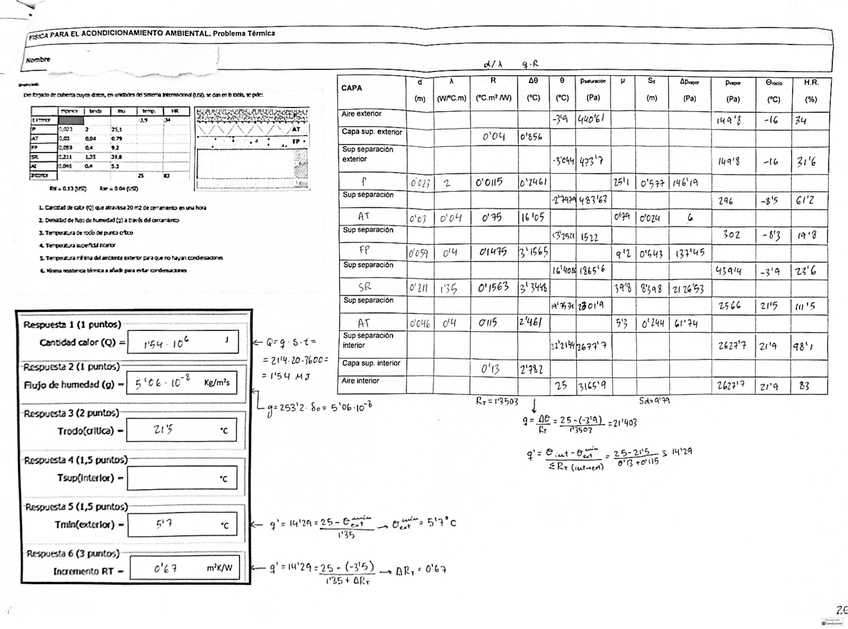 FISICA PARA EL ACONDICIONAMIENTO AMBIENTAL. Problema Térmica
Nombre
Del forjado de cubierta cuyos datos, en unidades del Sistema Internacional (USI), se dan en la tabla, se pide:
espesor lamda mu temp. HR
Exterior -3,9 34
P 0,023 2 25,1
AT 0,03 0,04 0,79
FP 0,059 0,4 9,2
SR 0,211 1,35 39,8
AI 0,046 0,4 5,3
Interior 25 83
AT
FP
Rsi = 0.13 (USI) Rse = 0.04 (USI)
1. Cantidad de calor (Q) que atraviesa 20 m2 de cerramiento en una hora
2. Densidad de flujo de humedad (g) a través del cerramiento
3. Temperatura de rocío del punto crítico
4. Temperatura superficial interior
5. Temperatura mínima del ambiente exterior para que no hayan condensaciones
6. Mínima resistencia térmica a añadir para evitar condensaciones
d/λ q·R
CAPA d λ R Δθ θ Psaturación μ Sd Δpvapor pvapor θrocío H.R.
(m) (W/ºC.m) (ºC.m² /W) (ºC) (ºC) (Pa) (m) (Pa) (Pa) (ºC) (%)
Aire exterior -3'9 440'61 149'8 -16 34
Capa sup. exterior 0'04 0'856
Sup separación exterior -3'044 473'7 149'8 -16 31'6
P 0'023 2 0'0115 0'2461 25'1 0'577 146'19
Sup separación -2'7979 483'63 296 -8'5 61'2
AT 0'03 0'04 0'75 16'05 0'79 0'024 6
Sup separación 13'2521 1522 302 -8'3 19'8
FP 0'059 0'4 0'1475 3'1565 9'2 0'543 137'45
Sup separación 16'4086 1865'6 439'4 -3'9 23'6
SR 0'211 1'35 0'1563 3'3448 39'8 8'398 2126'53
Sup separación 19'7534 2301'9 2566 21'5 111'5
AT 0'046 0'4 0'115 2'461 5'3 0'244 61'74
Sup separación interior 2677'7 2627'7 21'9 98'1
Capa sup. interior 0'13 2'782
Aire interior 25 3165'9 2627'7 21'9 83
RT = 1'3503 Sd = 9'79
q = Δθ/RT = 25-(-3'9)/1'3503 = 21'403
q' = θint - θext mín/ΣRT (int→ext) = 25-21'5/0'13+0'115 = 14'29
Respuesta 1 (1 puntos)
Cantidad calor (Q) = 1'54 · 10⁶ J
← Q = q · S · t =
= 21'4 · 20 · 3600 =
= 1'54 MJ
Respuesta 2 (1 puntos)
Flujo de humedad (g) = 5'06 · 10⁻⁸ Kg/m²s
g = 253'2 · δo = 5'06 · 10⁻⁸
Respuesta 3 (2 puntos)
Trodo(crítica) = 21'5 ºC
Respuesta 4 (1,5 puntos)
Tsup(interior) = ºC
Respuesta 5 (1,5 puntos)
Tmín(exterior) = 5'7 ºC
← q' = 14'29 = 25 - θext mín/1'35 → θext mín = 5'7 ºC
Respuesta 6 (3 puntos)
Incremento RT = 0'67 m²K/W
← q' = 14'29 = 25 - (-3'5)/1'35 + ΔRT → ΔRT = 0'67
CamScanner